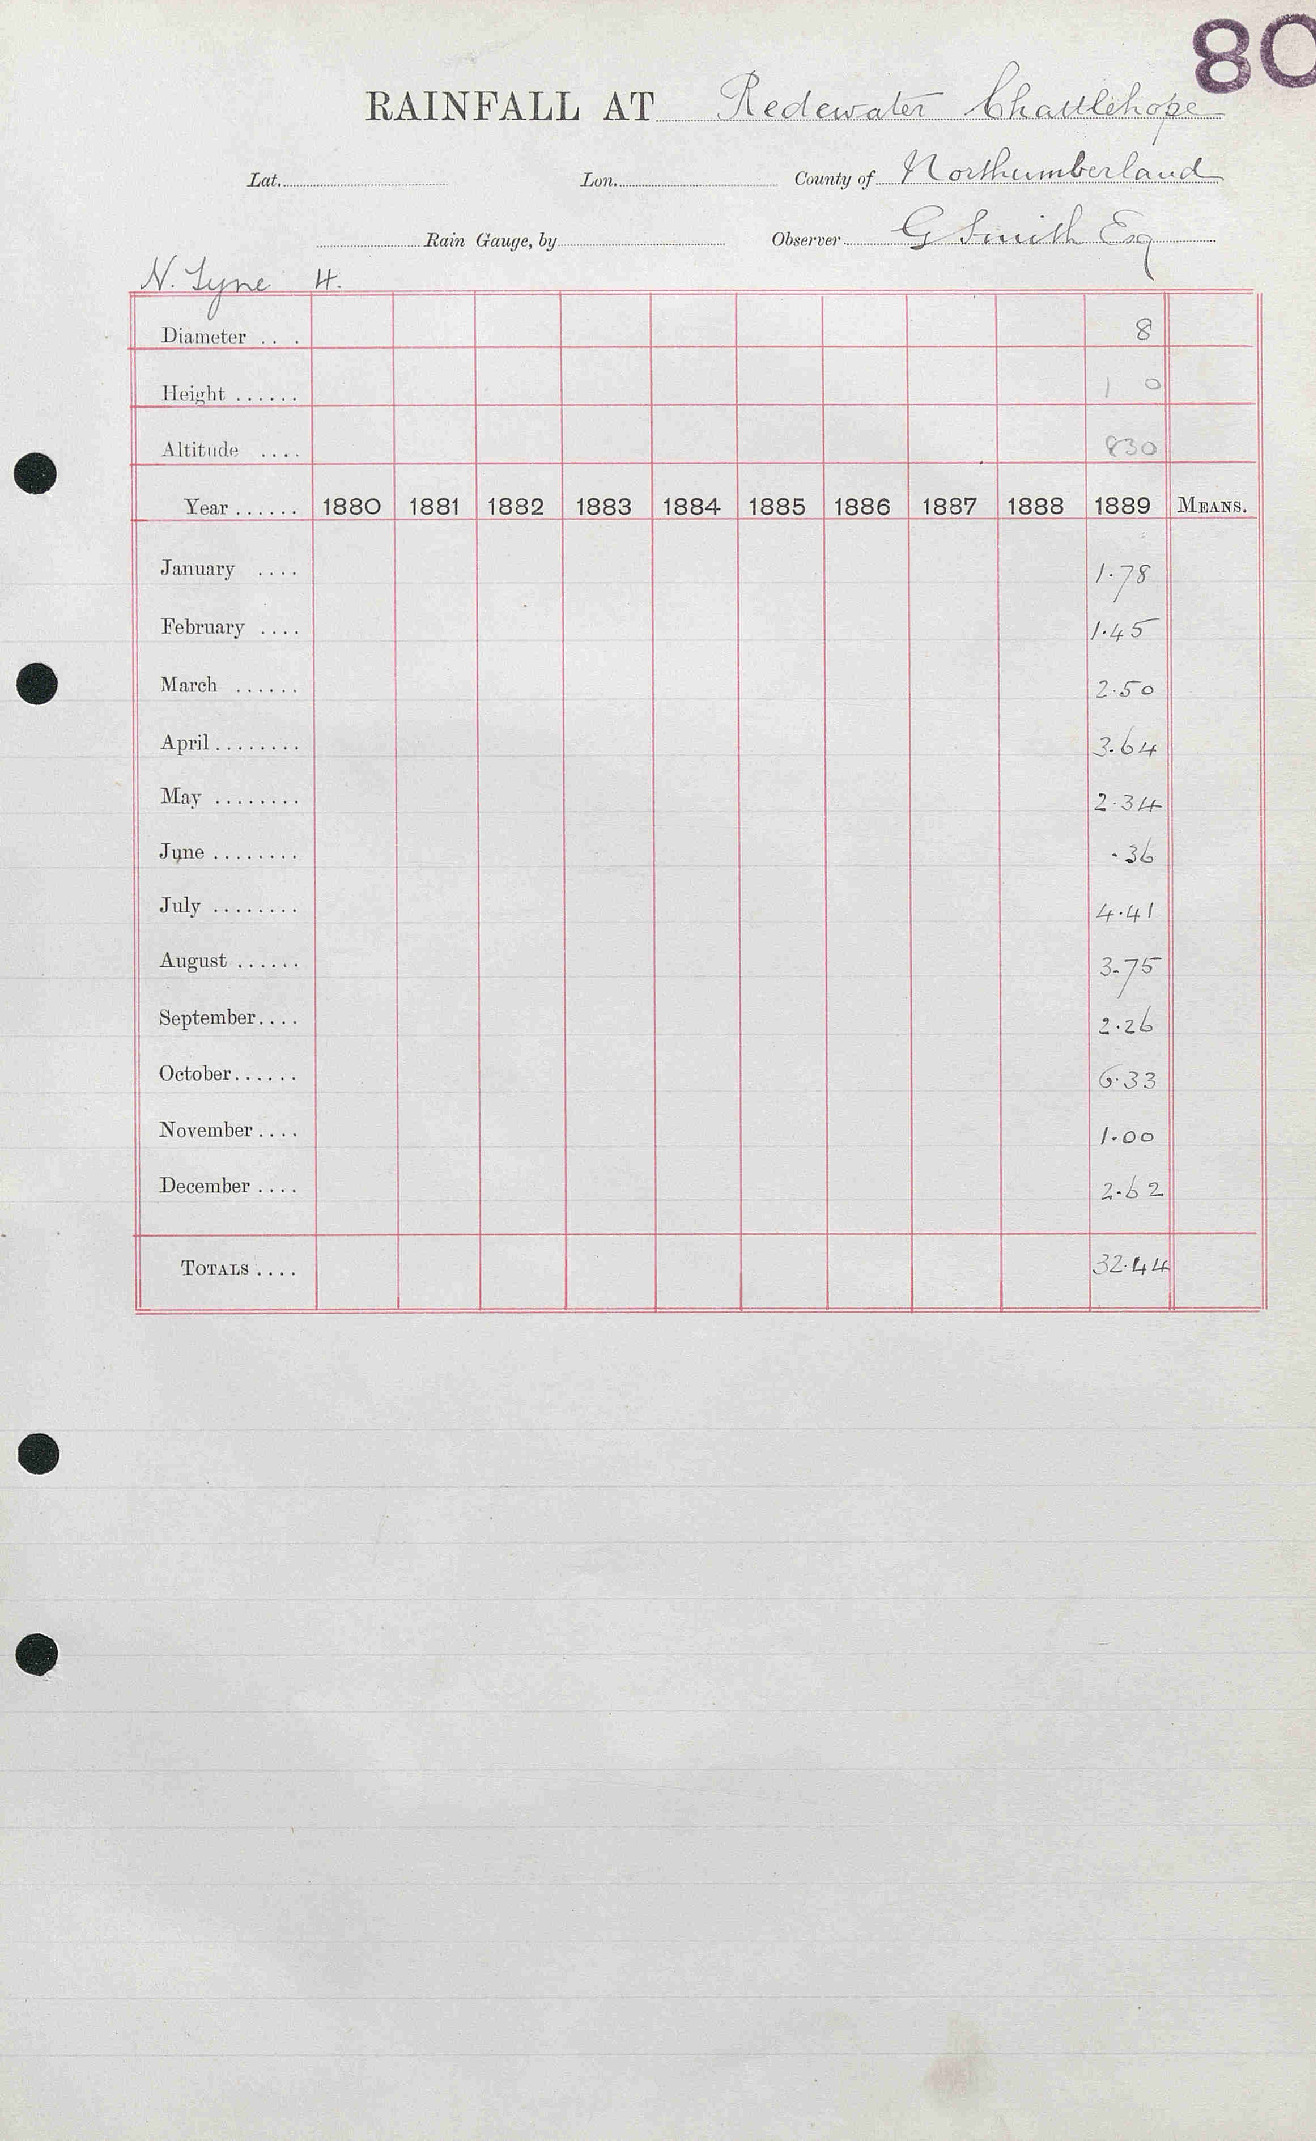 80
RAINFALL AT Redewater Chattlehope
Lat. Lon. County of Northumberland
Rain Gauge, by Observer G Smith Esq
N. Tyne 4.
Diameter .... 8
Height ...... 1 0
Altitude .... 830
Year ...... 1880 1881 1882 1883 1884 1885 1886 1887 1888 1889 MEANS.
January .... 1.78
February .... 1.45
March ...... 2.50
April ........ 3.64
May ........ 2.34
June ........ .36
July ........ 4.41
August ...... 3.75
September.... 2.26
October...... 6.33
November.... 1.00
December .... 2.62
TOTALS .... 32.44